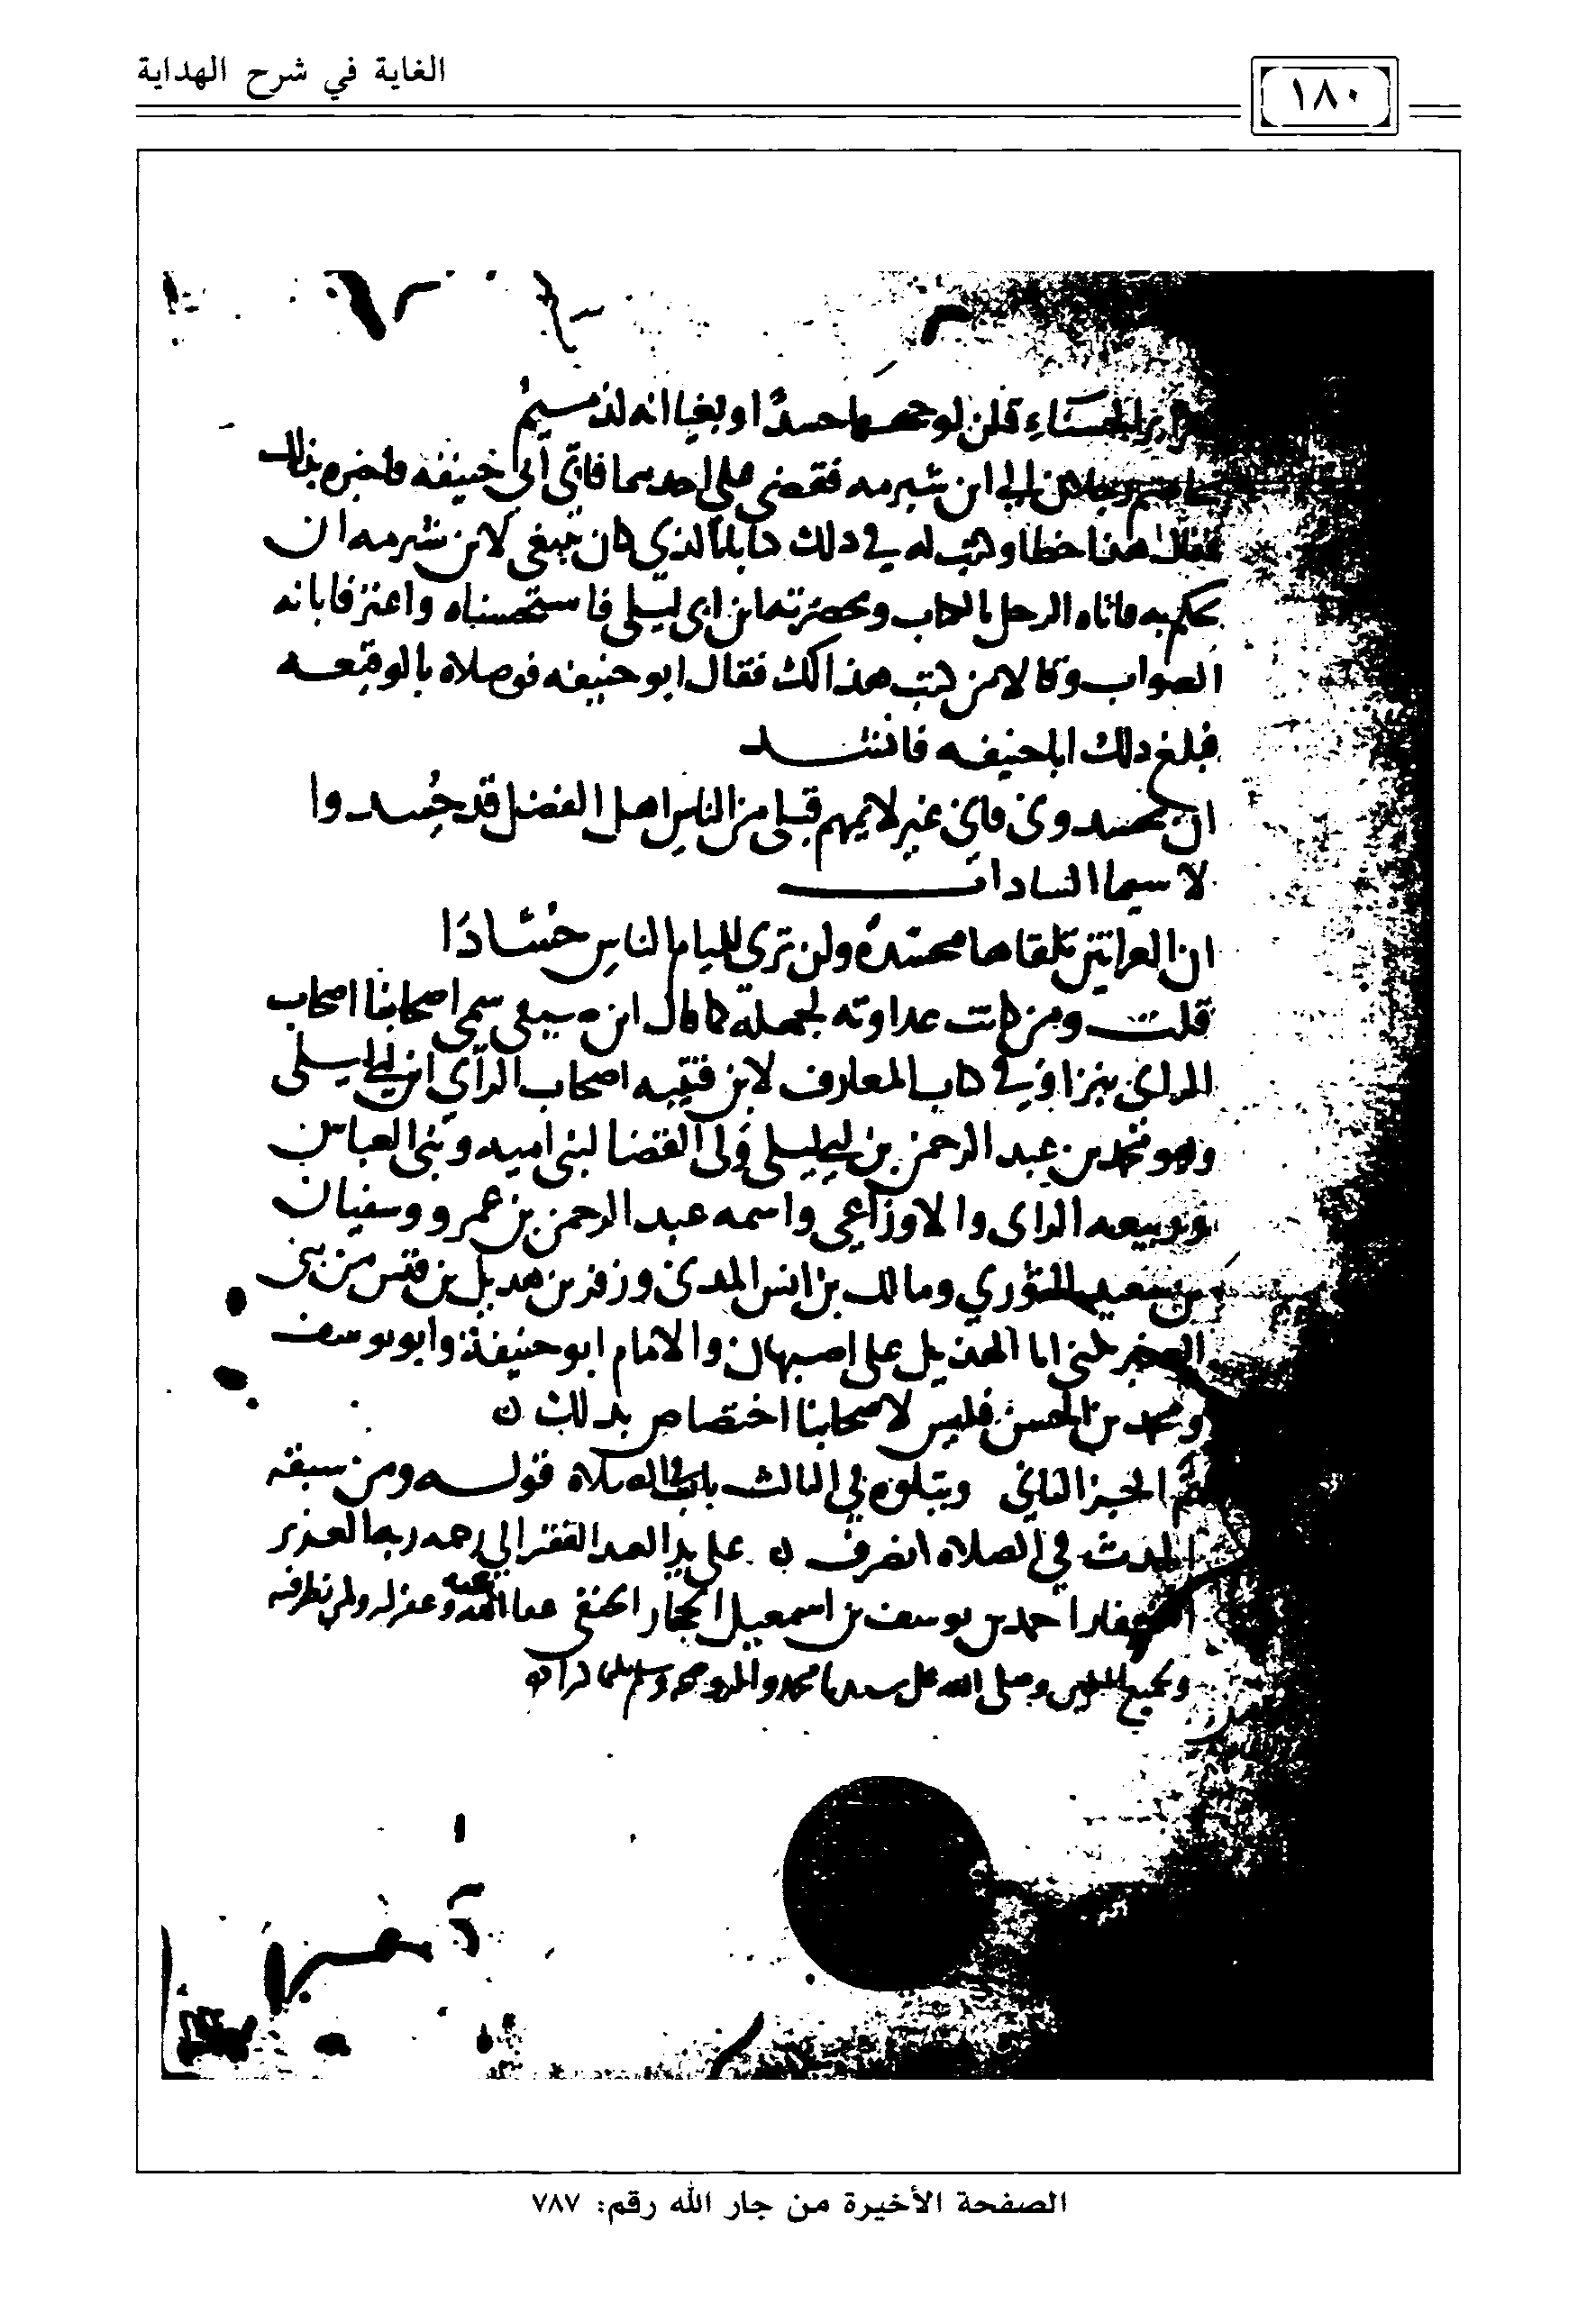 الغاية في شرح الهداية
١٨٠
كضرائر الحسناء قلن لوجهها حسدًا وبغيا انه لذميم
رجلان الى ابن شبرمه فقضى على احدهما فاتى ابي حنيفه فاخبره بذلك
فقال هذا خطا وكتب له في ذلك كتابا الذي كان ينبغي لابن شبرمه ان
يحكم به فاتاه الرجل بالكتاب وبحضرته ابن ابي ليلى فاستحسناه واعترفا بانه
الصواب وقالا من كتب هذا لك فقال ابو حنيفه فوصلاه بالوقيعه
فبلغ ذلك ابا حنيفه فانشد
ان يحسدوني فاني غير لايمهم قبلي من الناس اهل الفضل قد حُسدوا
لا سيما السادات
ان العرانين تلقاها محسّدةً ولن ترى للئام الناس حُسّادَا
قلت ومن كانت عداوته لجهله كما قال ابن سمى اصحابنا اصحاب
الراي في كتاب المعارف لابن قتيبه اصحاب الرأي ابن ابي ليلى
وهو محمد بن عبد الرحمن بن ابي ليلى وَلي القضا لبني اميه وبني العباس
وربيعه الراى والاوزاعي واسمه عبد الرحمن بن عمرو وسفيان
بن سعيد الثوري ومالك بن انس المدني وزفر بن هديل بن قيس من بني
العنبر الهذيل على اصبهان والامام ابو حنيفة وابو يوسف
ومحمد بن الحسن فليس لاصحابنا اختصاص بذلك ن
تم الجز الثاني ويتلوه في الثالث باب في الصلاة قوله ومن سبقه
الحدث في الصلاه انصرف ن على يد العبد الفقير الى رحمه ربه العزيز
الغفار احمد بن يوسف بن اسمعيل الحنفي عفا الله عنه وغفر له ولمن نظر فيه
ولجميع المسلمين وصلى الله على سيدنا محمد واله وصحبه وسلم
الصفحة الأخيرة من جار الله رقم: ٧٨٧